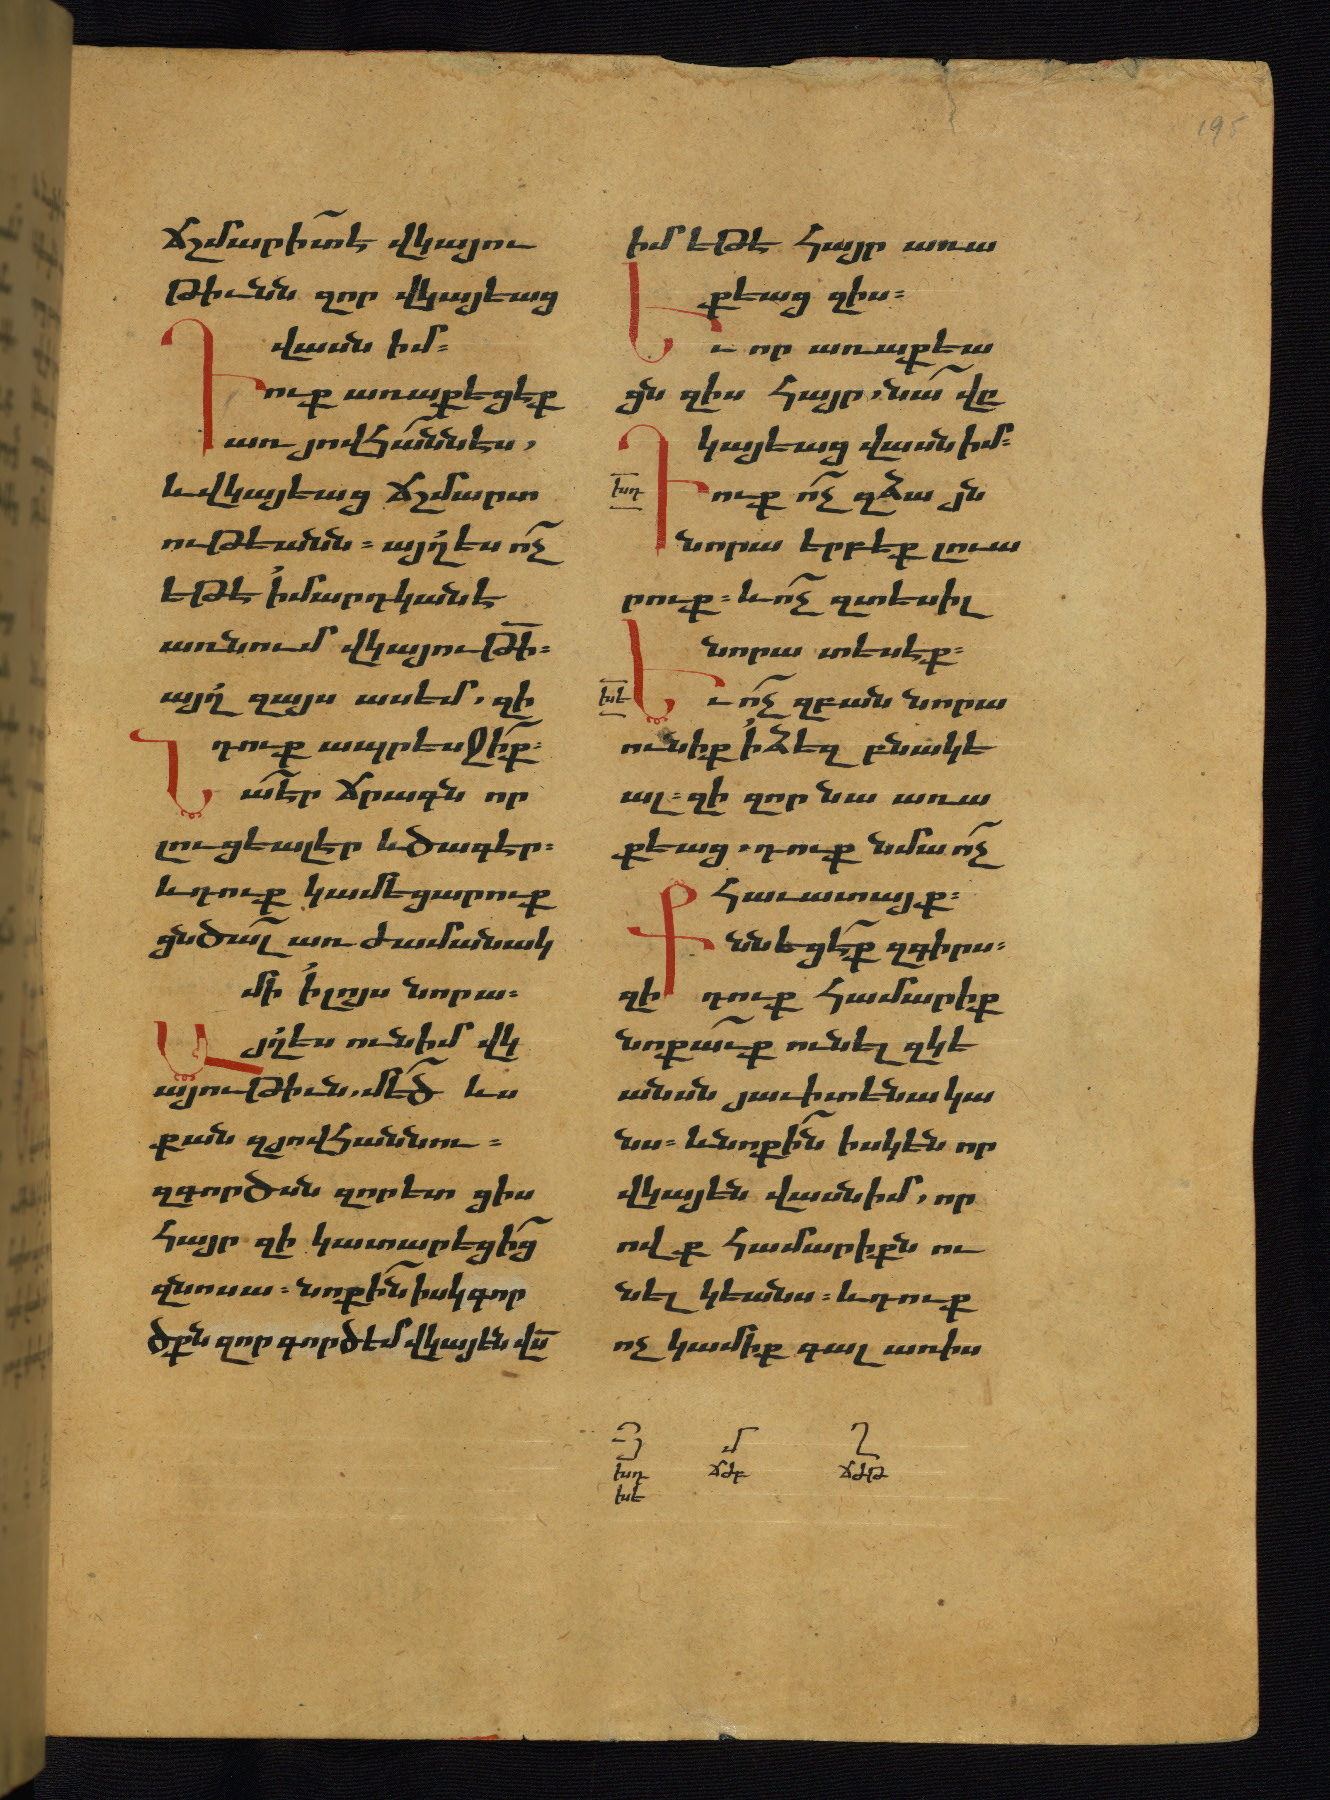 ճշմարիտ է վկայու
թիւնն զոր վկայեաց
վասն իմ։
Դուք առաքեցէք
առ յովհաննէս,
և վկայեաց ճշմարտ
ութեանն։ այլ ես ոչ
եթէ ի մարդկանէ
առնում վկայութի։
այլ զայս ասեմ, զի
դուք ապրեսջիք։
Նա էր ճրագն որ
լուցեալ էր և ծագէր։
և դուք կամեցարուք
ցնծալ առ ժամանակ
մի ի լոյս նորա։
Այլ ես ունիմ վկ
այութիւն, մեծ ևս
քան զյովհաննու։
զգործսն զոր ետ ցիս
հայր զի կատարեցից
զնոսա։ նոքին իսկ գոր
ծքն զոր գործեմ վկայեն վս
իմ եթէ հայր առա
քեաց զիս։
Եւ որ առաքեա
ցն զիս հայր, նա վը
կայեաց վասն իմ։
խդ
Դուք ոչ զձայն
նորա երբեք լուա
րուք։ և ոչ զտեսիլ
նորա տեսէք։
խե
Եւ ոչ զբան նորա
ունիք ի ձեզ բնակե
ալ։ զի զոր նա առա
քեաց, դուք նմա ոչ
հաւատայք։
Քննեցէք զգիրս։
զի դուք համարիք
նոքաւք ունել զկե
անսն յաւիտենակա
նս։ և նոքին իսկ են որ
վկայեն վասն իմ, որ
ովք համարիքն ու
նել կեանս։ և դուք
ոչ կամիք գալ առ իս
Յ Մ Ղ
խդ ճժբ ճժթ
խե
195